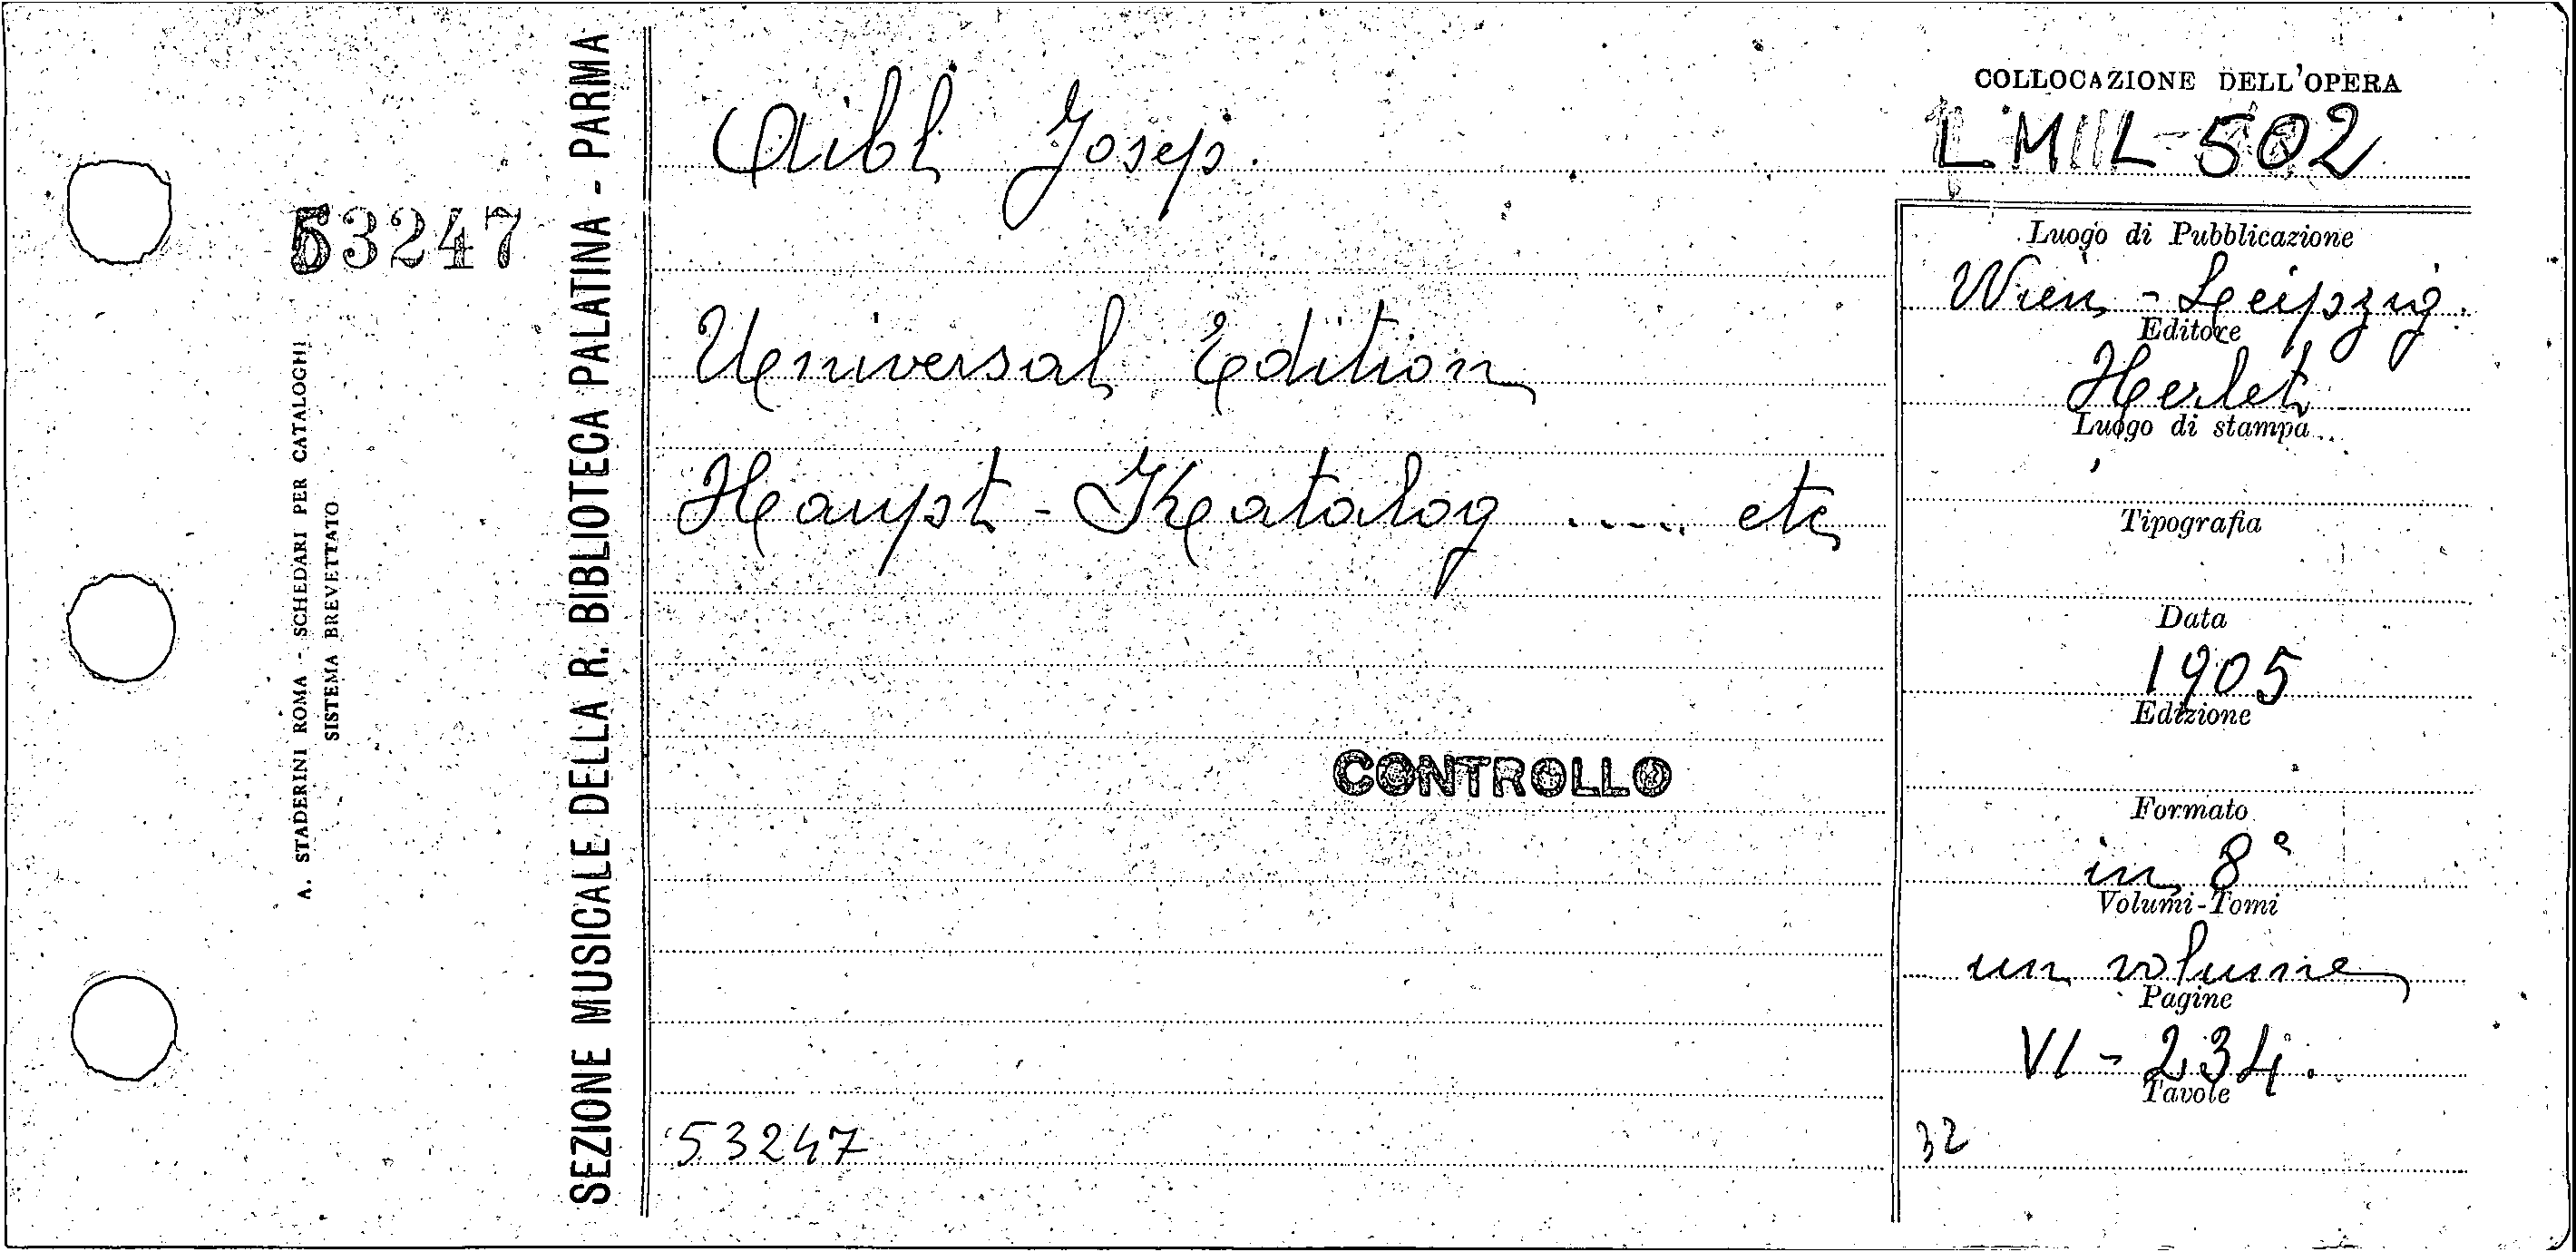 53247
A. STADERINI ROMA - SCHEDARI PER CATALOGHI
SISTEMA BREVETTATO
SEZIONE MUSICALE DELLA R. BIBLIOTECA PALATINA - PARMA
Aibl Josep.
Universal Edition
Haupt - Katalog ..... etc
CONTROLLO
53247
COLLOCAZIONE DELL'OPERA
502
Luogo di Pubblicazione
Wien - Leipzig.
Editore
Herlet
Luogo di stampa
Tipografia
Data
1905
Edizione
Formato
in 8°
Volumi-Tomi
un volume
Pagine
VI - 234.
Tavole
32